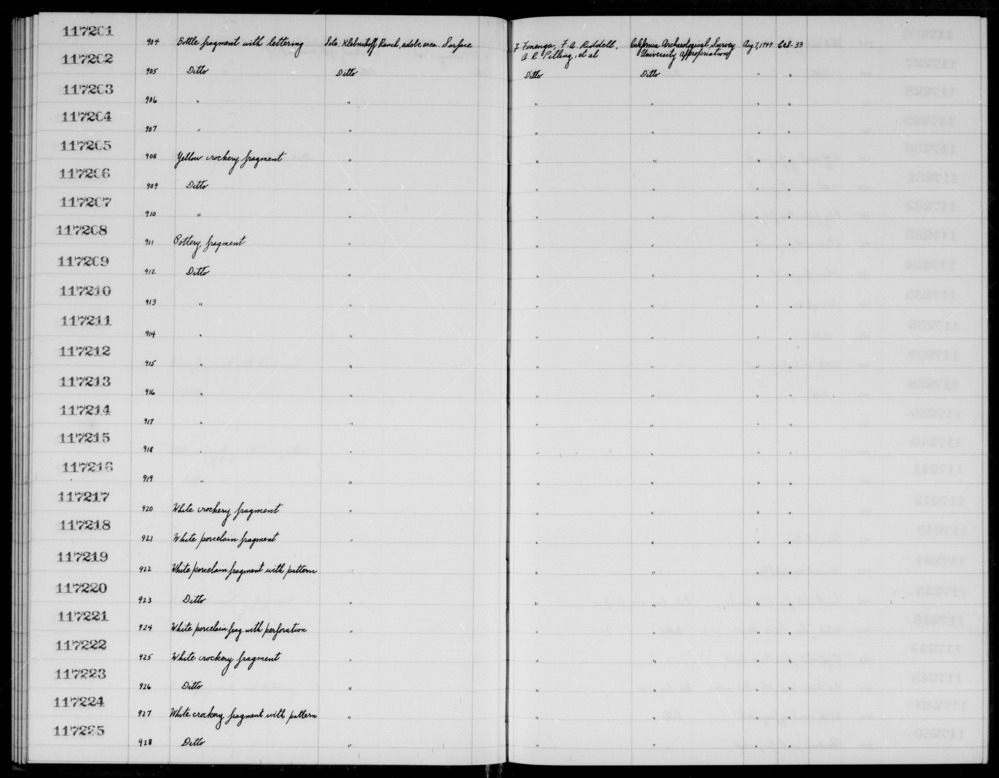 117201
904 Bottle fragment with lettering Solo. Klebnikoff Ranch, adobe area. Surface F. Fenenga, F. A. Riddell, California Archaeological Survey Aug 7, 1949 Cat. 33
A. R. Pilling, et al University Appropriations
117202
905 Ditto Ditto Ditto Ditto " "
117203
906 " " " " " "
117204
907 " " " " " "
117205
908 Yellow crockery fragment " " " " "
117206
909 Ditto " " " " "
117207
910 " " " " " "
117208
911 Pottery fragment " " " " "
117209
912 Ditto " " " " "
117210
913 " " " " " "
117211
914 " " " " " "
117212
915 " " " " " "
117213
916 " " " " " "
117214
917 " " " " " "
117215
918 " " " " " "
117216
919 " " " " " "
117217
920 White crockery fragment " " " " "
117218
921 White porcelain fragment " " " " "
117219
922 White porcelain fragment with pattern " " " " "
117220
923 Ditto " " " " "
117221
924 White porcelain frag with perforation " " " " "
117222
925 White crockery fragment " " " " "
117223
926 Ditto " " " " "
117224
927 White crockery fragment with pattern " " " " "
117225
928 Ditto " " " " "